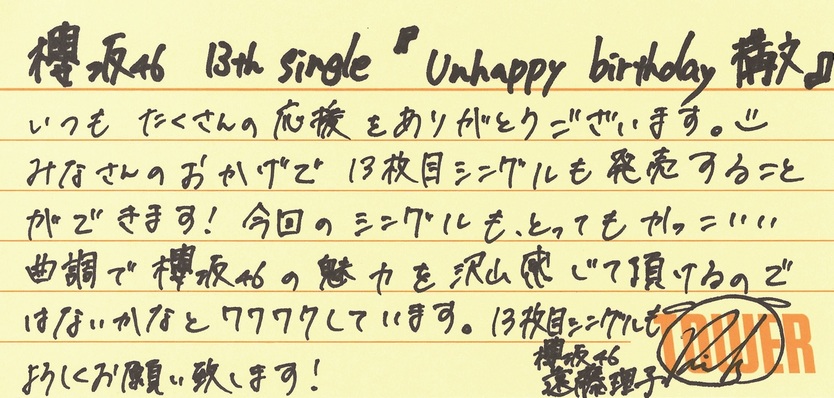 櫻坂46 13th single 『Unhappy birthday 構文』
いつも たくさんの 応援 をありがとうございます。
みなさんの おかげで 13枚目シングルも 発売すること
ができます! 今回の シングルも、とっても かっこいい
曲調で 櫻坂46の 魅力を 沢山 感じて頂けるので
はないかなと ワクワクしています。13枚目シングルも
よろしくお願い致します!
櫻坂46
遠藤理子
TOWER